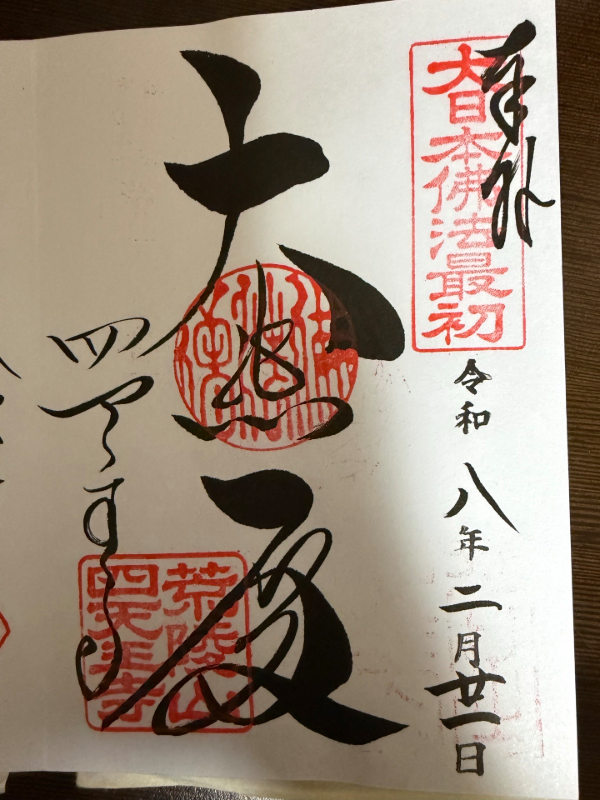 奉拝
大日本佛法最初
令和八年二月廿一日
大悲殿
四天王寺
荒陵山
四天王寺